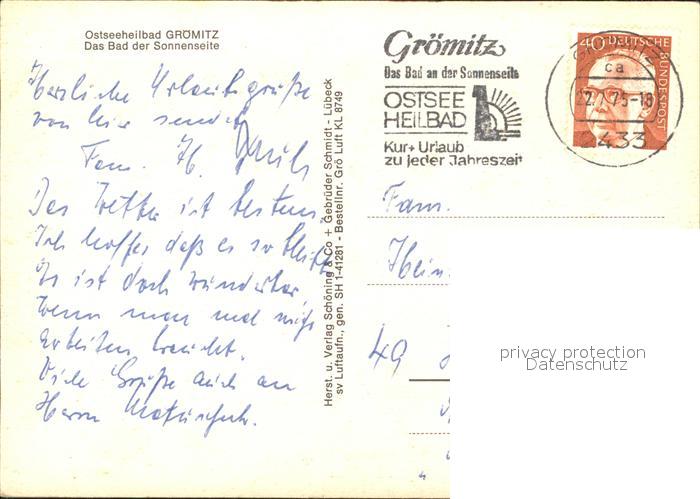 Ostseeheilbad GRÖMITZ
Das Bad der Sonnenseite
Herzliche Urlaubsgrüße
von hier sendet
Fam. H.
Das Wetter ist bestens.
Ich hoffe daß es so bleibt
Es ist doch wunderbar
Wenn man mal nicht
Arbeiten braucht.
Viele Grüße auch an
Herrn
Herst. u. Verlag Schöning & Co + Gebrüder Schmidt - Lübeck
sv Luftaufn., gen. SH 1-41281 - Bestellnr. Grö Luft KL 8749
Grömitz
Das Bad an der Sonnenseite
OSTSEE
HEILBAD
Kur + Urlaub
zu jeder Jahreszeit
ca
22.7.75-18
2433
40 DEUTSCHE
BUNDESPOST
Fam.
Hein
49
privacy protection
Datenschutz